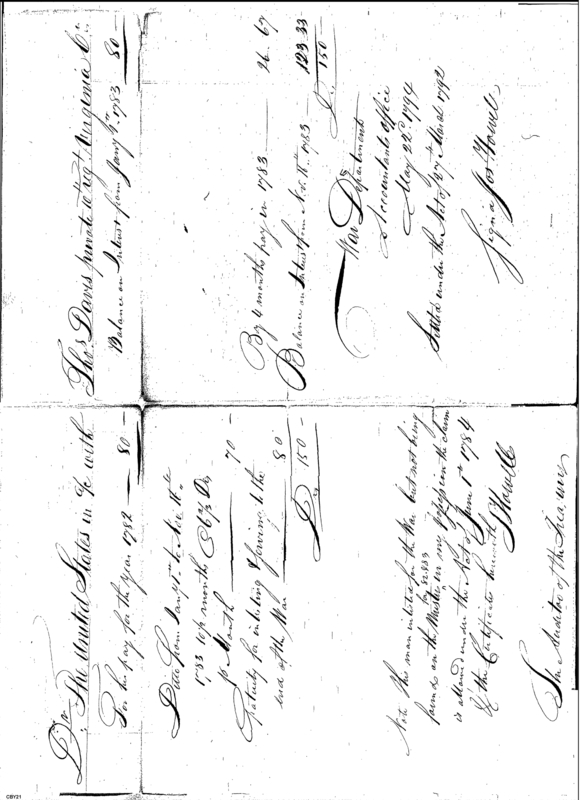 Dr The United States in a/c with
For his pay for the Year 1782 — 80 —
Ditto from Jany 1st to Nov. 15th
1783 10½ months @ 6⅔ Ds
p Month — 70 —
Gratuity for inlisting & serving to the
end of the War — 80
D 150 —
Note This man inlisted for the War but not being
found on the Muster in my Office the claim
is allowed under the Act of June 1st 1784
& the Certificate herewith
J Howell
The Auditor of the Treasury
Thos Davis private regt Virginia Ct
Balance on Interest from Jany 1783 80 —
By 4 months pay in 1783 — 26.67
Balance on Interest from Nov. 15th 1783 — 123.33
D 150 —
War Department
Accountants Office
May 22d 1794
Settled under the Act of 27th March 1792
Signed Jos Howell
CBY21